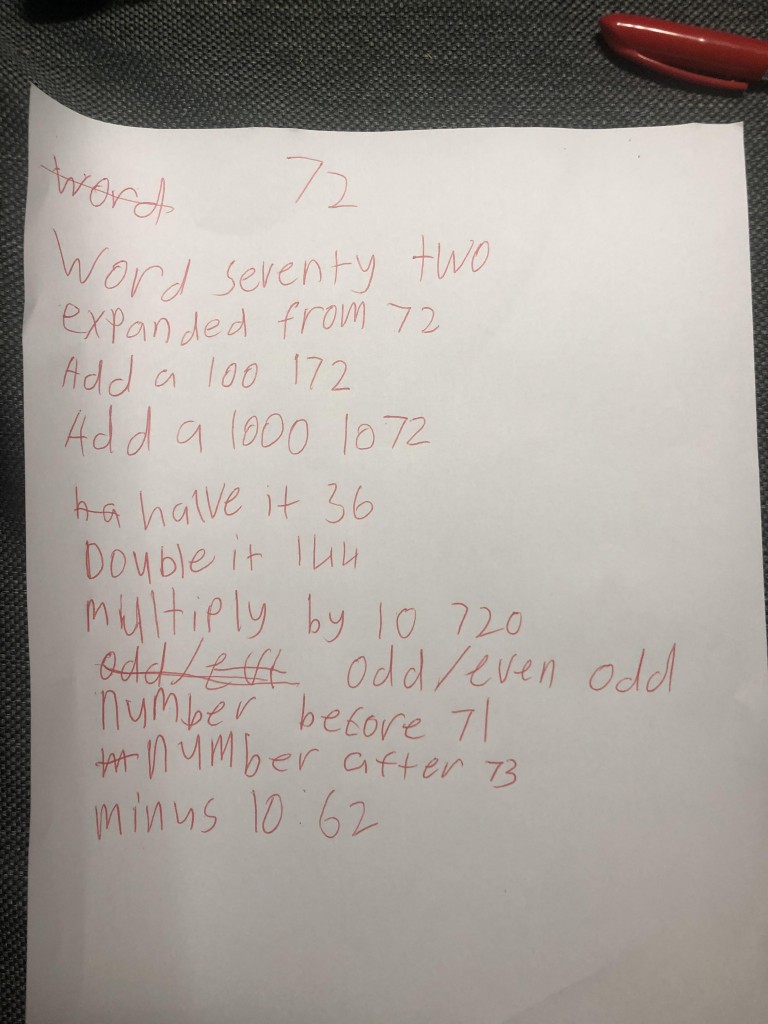 word 72
Word seventy two
expanded from 72
Add a 100 172
Add a 1000 1072
ha halve it 36
Double it 144
multiply by 10 720
odd/eve odd/even odd
number before 71
m number after 73
minus 10:62